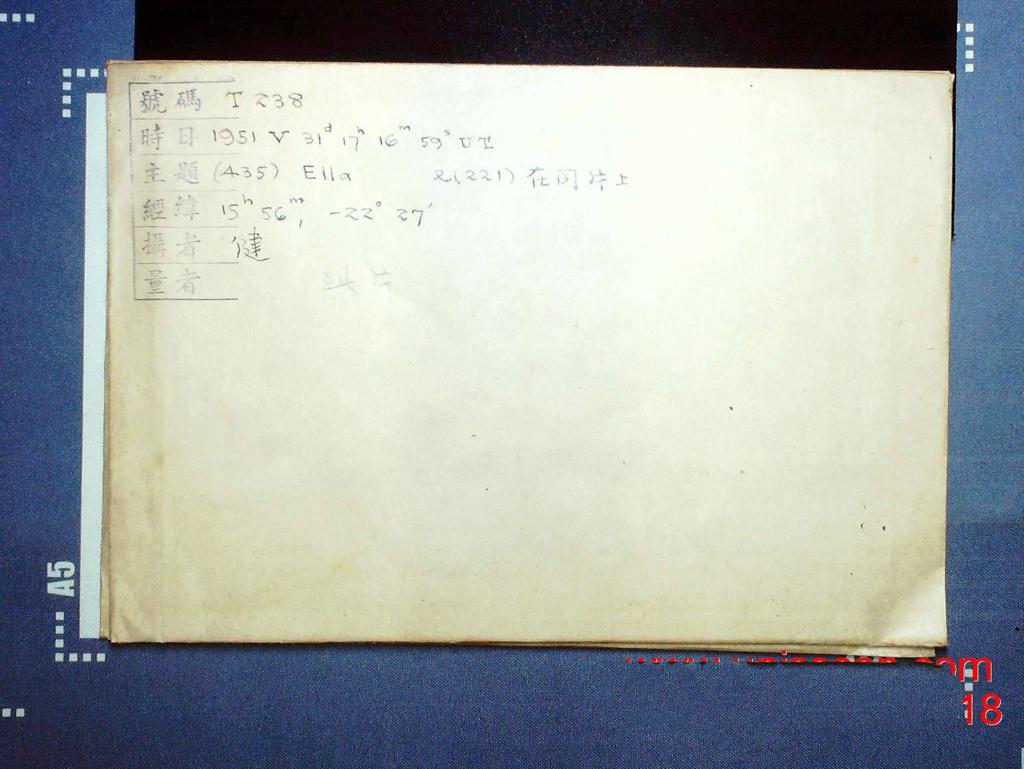 號碼 T 238
時日 1951 V 31ᵈ 17ʰ 16ᵐ 59ˢ UT
主題 (435) Ella 2(221) 在同片上
經緯 15ʰ 56ᵐ, -22° 27'
攝者 健
量者
A5
18